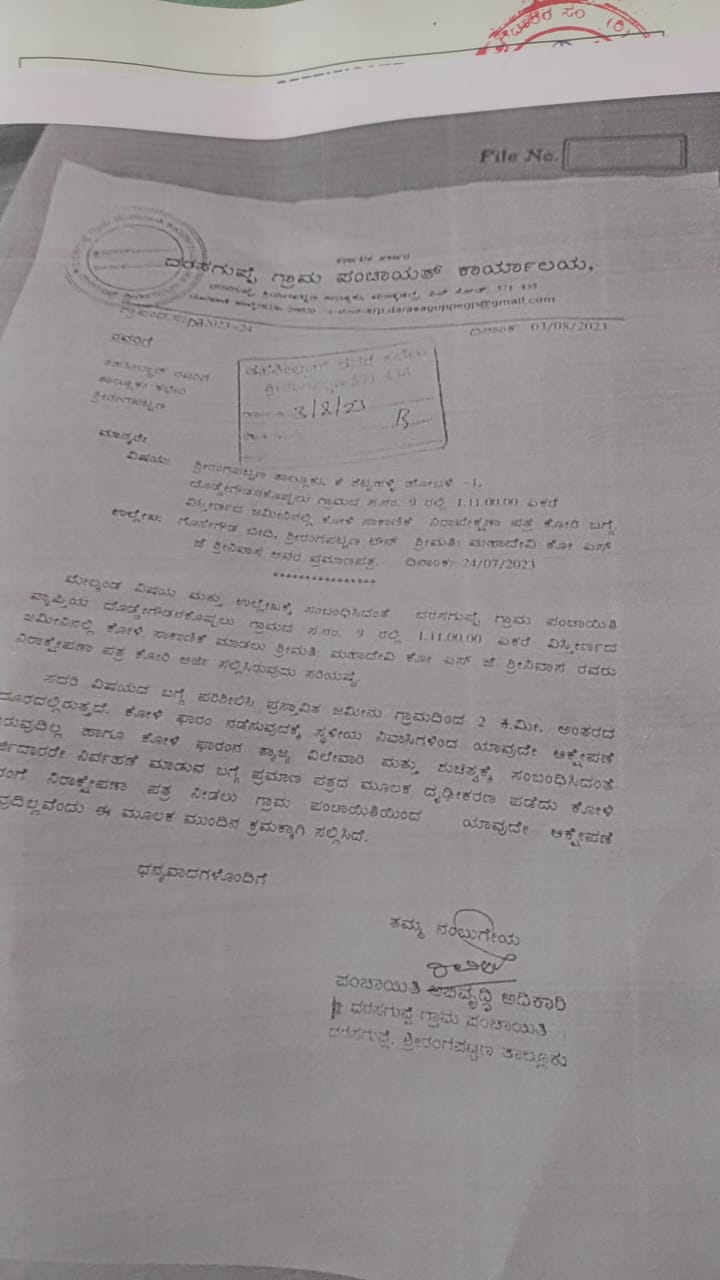 File No.
ದರಸಗುಪ್ಪೆ ಗ್ರಾಮ ಪಂಚಾಯತ್ ಕಾರ್ಯಾಲಯ,
571 438
ದಿನಾಂಕ: 03/08/2023
ರವರಿಗೆ
ತಹಸೀಲ್ದಾರ್ ರವರಿಗೆ
ತಾಲ್ಲೂಕು ಕಛೇರಿ
ಶ್ರೀರಂಗಪಟ್ಟಣ
3/8/23
B
ಮಾನ್ಯರೇ
ವಿಷಯ: ಶ್ರೀರಂಗಪಟ್ಟಣ ತಾಲ್ಲೂಕು, ಕೆ ಶೆಟ್ಟಹಳ್ಳಿ ಹೋಬಳಿ -1,
ದೊಡ್ಡೇಗೌಡನಕೊಪ್ಪಲು ಗ್ರಾಮದ ಸ.ನಂ. 9 ರಲ್ಲಿ 1.11.00.00 ಎಕರೆ
ವಿಸ್ತೀರ್ಣದ ಜಮೀನಿನಲ್ಲಿ ಕೋಳಿ ಸಾಕಾಣಿಕೆ ಪತ್ರ ಕೋರಿ ಬಗ್ಗೆ.
ಉಲ್ಲೇಖ: ಬೀದಿ, ಶ್ರೀರಂಗಪಟ್ಟಣ ಟೌನ್ ಶ್ರೀಮತಿ: ಮಹಾದೇವಿ ಕೋ ಎಸ್
ಜೆ ಶ್ರೀನಿವಾಸ ಅವರ ಪ್ರಮಾಣಪತ್ರ. ದಿನಾಂಕ: 24/07/2023
****************
ಮೇಲ್ಕಂಡ ವಿಷಯ ಮತ್ತು ಉಲ್ಲೇಖಕ್ಕೆ ಸಂಬಂಧಿಸಿದಂತೆ ದರಸಗುಪ್ಪೆ ಗ್ರಾಮ ಪಂಚಾಯಿತಿ
ವ್ಯಾಪ್ತಿಯ ದೊಡ್ಡೇಗೌಡನಕೊಪ್ಪಲು ಗ್ರಾಮದ ಸ.ನಂ. 9 ರಲ್ಲಿ 1.11.00.00 ಎಕರೆ ವಿಸ್ತೀರ್ಣದ
ಜಮೀನಿನಲ್ಲಿ ಕೋಳಿ ಸಾಕಾಣಿಕೆ ಮಾಡಲು ಶ್ರೀಮತಿ: ಮಹಾದೇವಿ ಕೋ ಎಸ್ ಜೆ ಶ್ರೀನಿವಾಸ ರವರು
ನಿರಾಕ್ಷೇಪಣಾ ಪತ್ರ ಕೋರಿ ಅರ್ಜಿ ಸಲ್ಲಿಸಿರುವುದು ಸರಿಯಷ್ಟೆ.
ಸದರಿ ವಿಷಯದ ಬಗ್ಗೆ ಪರಿಶೀಲಿಸಿ ಪ್ರಸ್ತಾವಿತ ಜಮೀನು ಗ್ರಾಮದಿಂದ 2 ಕಿ.ಮೀ. ಅಂತರದ
ದೂರದಲ್ಲಿರುತ್ತದೆ. ಕೋಳಿ ಫಾರಂ ನಡೆಸುವುದಕ್ಕೆ ಸ್ಥಳೀಯ ನಿವಾಸಿಗಳಿಂದ ಯಾವುದೇ ಆಕ್ಷೇಪಣೆ
ರುವುದಿಲ್ಲ ಹಾಗೂ ಕೋಳಿ ಫಾರಂನ ತ್ಯಾಜ್ಯ ವಿಲೇವಾರಿ ಮತ್ತು ಶುಚಿತ್ವಕ್ಕೆ ಸಂಬಂಧಿಸಿದಂತೆ
ರ್ಜಿದಾರರೇ ನಿರ್ವಹಣೆ ಮಾಡುವ ಬಗ್ಗೆ ಪ್ರಮಾಣ ಪತ್ರದ ಮೂಲಕ ದೃಢೀಕರಣ ಪಡೆದು ಕೋಳಿ
ರಂಗೆ ನಿರಾಕ್ಷೇಪಣಾ ಪತ್ರ ನೀಡಲು ಗ್ರಾಮ ಪಂಚಾಯಿತಿಯಿಂದ ಯಾವುದೇ ಆಕ್ಷೇಪಣೆ
ವುದಿಲ್ಲವೆಂದು ಈ ಮೂಲಕ ಮುಂದಿನ ಕ್ರಮಕ್ಕಾಗಿ ಸಲ್ಲಿಸಿದೆ.
ಧನ್ಯವಾದಗಳೊಂದಿಗೆ
ತಮ್ಮ ನಂಬುಗೇಯ
ಪಂಚಾಯಿತಿ ಅಭಿವೃದ್ಧಿ ಅಧಿಕಾರಿ
ದರಸಗುಪ್ಪೆ ಗ್ರಾಮ ಪಂಚಾಯಿತಿ
ದರಸಗುಪ್ಪೆ, ಶ್ರೀರಂಗಪಟ್ಟಣ ತಾಲ್ಲೂಕು